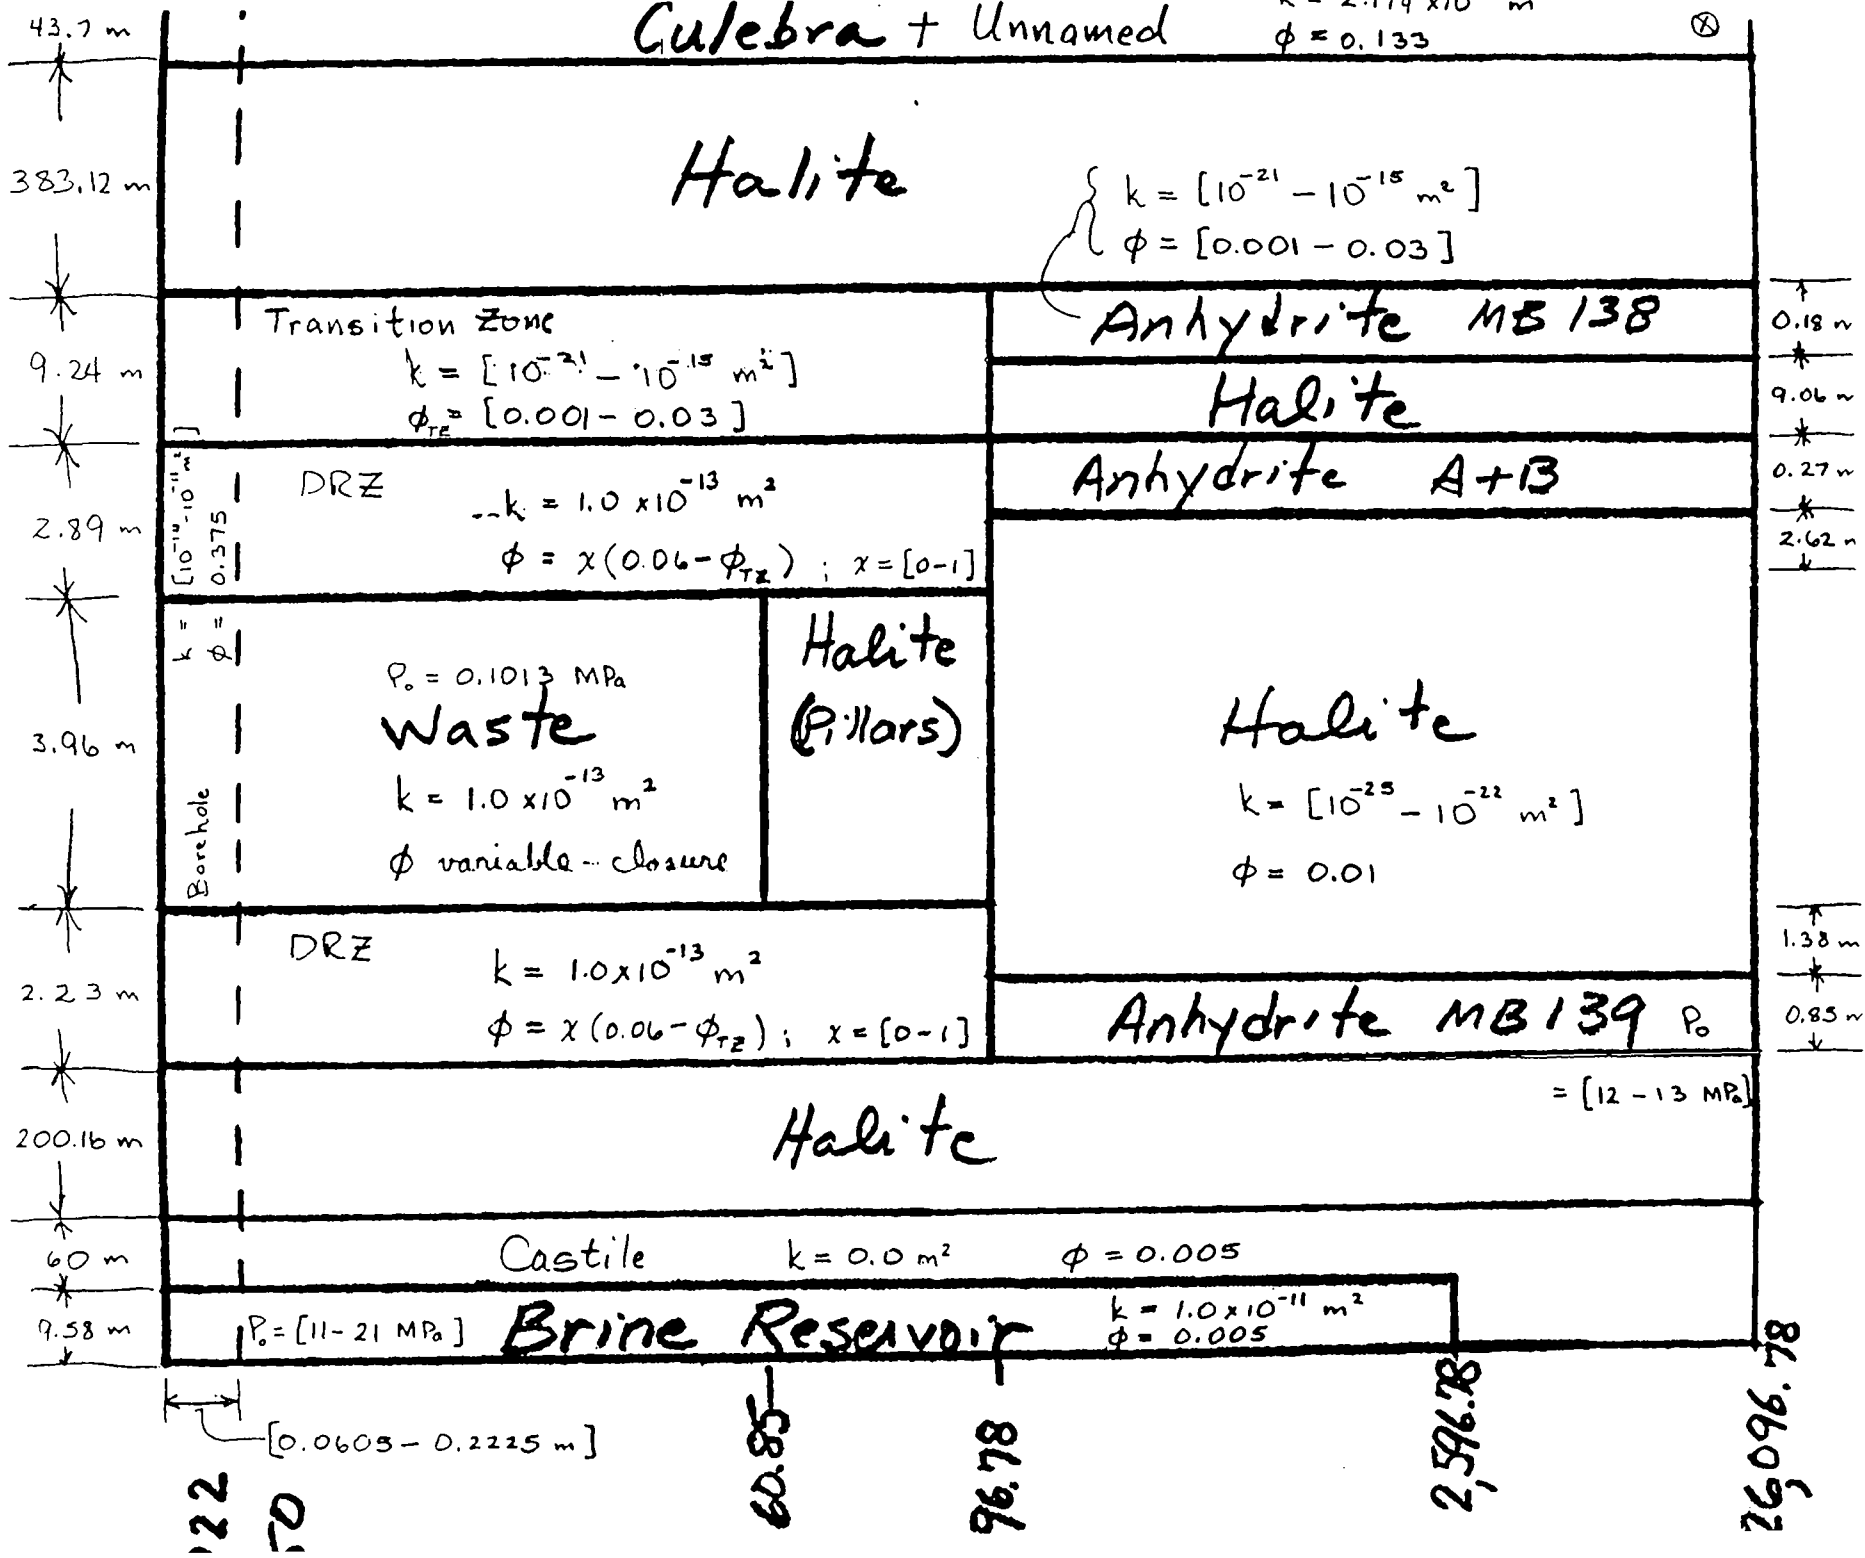 43.7 m
Culebra + Unnamed
φ = 0.133
383.12 m
Halite
k = [10⁻²¹ – 10⁻¹⁵ m²]
φ = [0.001 – 0.03]
Transition Zone
k = [10⁻²¹ – 10⁻¹⁵ m²]
φ_TZ = [0.001 – 0.03]
9.24 m
Anhydrite MB 138
0.18 m
Halite
9.06 m
Anhydrite A+B
0.27 m
2.62 m
DRZ
k = 1.0 x10⁻¹³ m²
φ = x(0.06 – φ_TZ) ; x = [0–1]
2.89 m
k = [10⁻¹⁴ - 10⁻¹¹ m²]
φ = 0.375
Borehole
3.96 m
P₀ = 0.1013 MPa
Waste
k = 1.0 x10⁻¹³ m²
φ variable - closure
Halite
(Pillars)
Halite
k = [10⁻²⁵ – 10⁻²² m²]
φ = 0.01
DRZ
k = 1.0x10⁻¹³ m²
φ = x(0.06 – φ_TZ) ; x = [0–1]
2.23 m
1.38 m
Anhydrite MB 139 P₀
0.85 m
= [12 – 13 MPa]
200.16 m
Halite
60 m
Castile k = 0.0 m² φ = 0.005
9.58 m
P₀ = [11 – 21 MPa] Brine Reservoir
k = 1.0 x 10⁻¹¹ m²
φ = 0.005
[0.0605 – 0.2225 m]
60.85
96.78
2,596.78
26,096.78